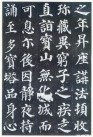 之年昇座講法頓收
珍藏異窮子之疾走
直詣寶山無化城而
可息爾後因静夜持
誦至多寶塔品身心